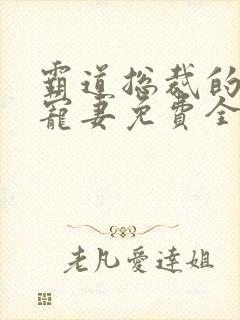 霸道总裁的
寵妻免費全
老凡愛達姐